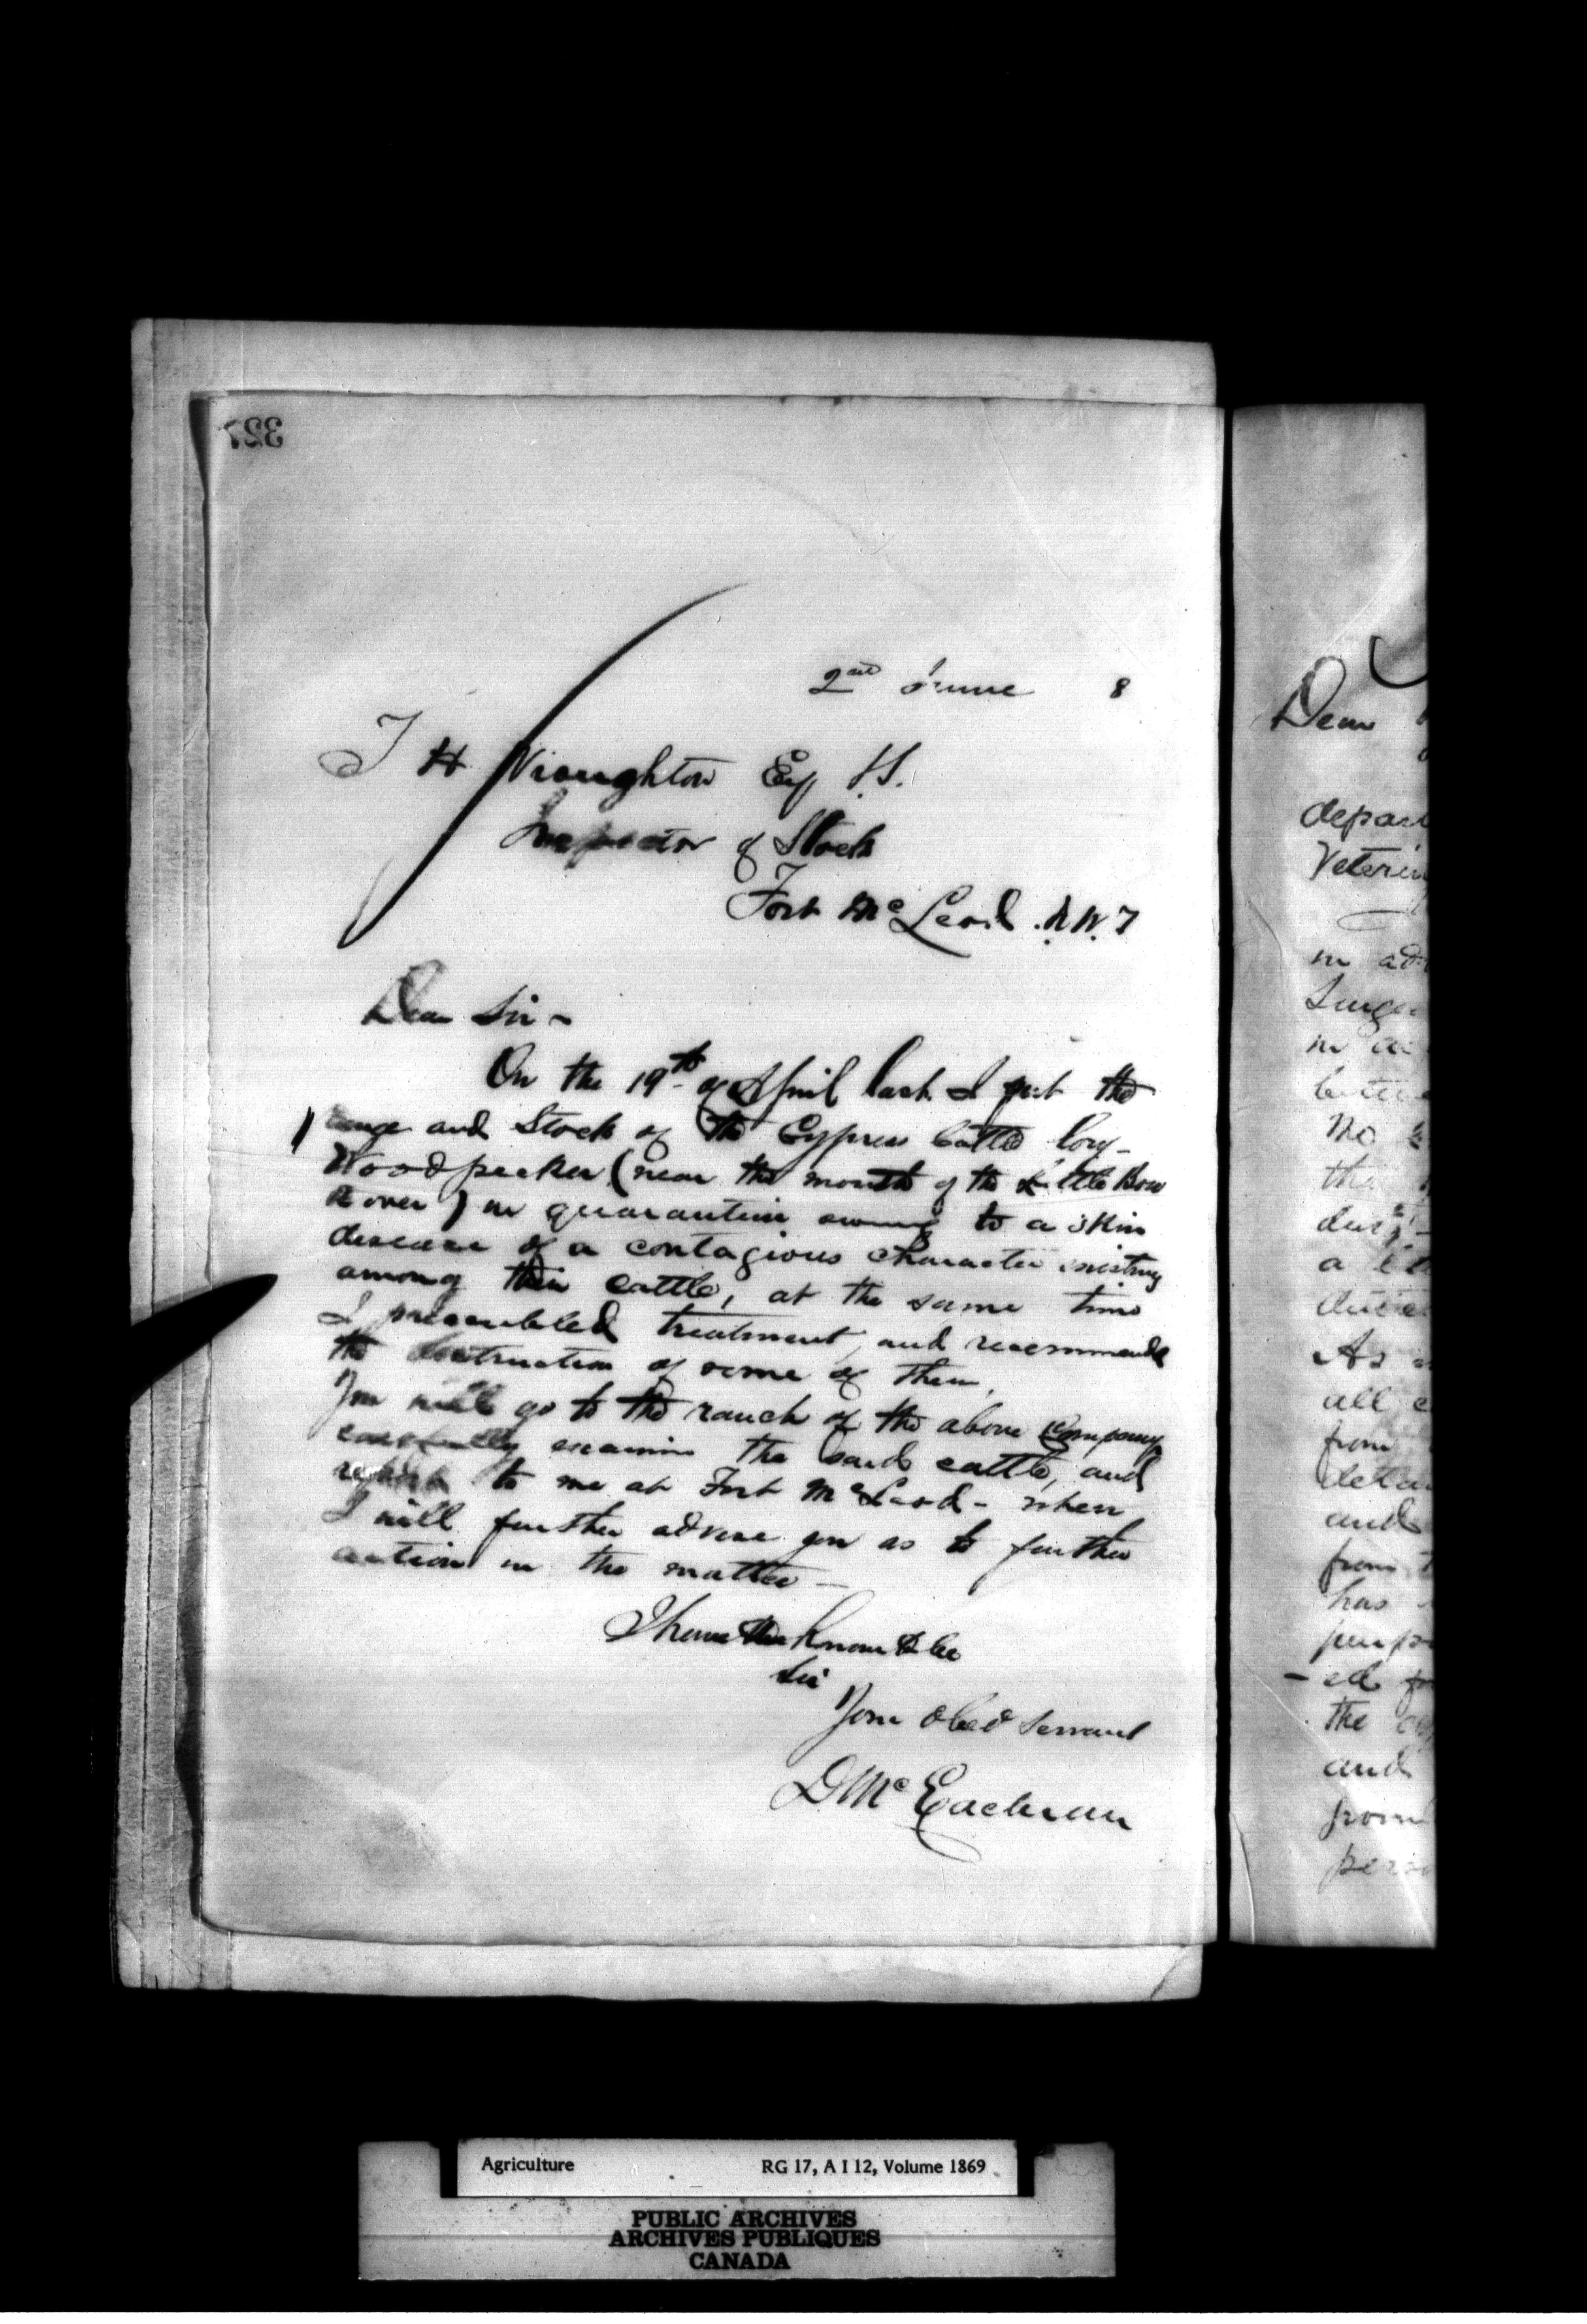 327
2nd June 8
T H Wroughton Esq V.S.
Inspector of Stock
Fort McLeod. N.W.T
Dear Sir -
On the 19th of April last I put the
range and Stock of the Cypress Cattle Coy-
Woodpecker (near the mouth of the Little Bow
River) in quarantine owing to a skin
disease of a contagious character existing
among their cattle, at the same time
I prescribed treatment, and recommended
the destruction of some of them.
You will go to the ranch of the above Company
carefully examine the said cattle, and
report to me at Fort McLeod - when
I will further advise you as to further
action in the matter -
I have the honour to be
Sir
Your Obed Servant
D McEachran
Dear
depart
Veterin
in ad
Surge
in
the
a
As
all
from
detai
and
from
has
purp
ed
the
and
from
perso
Agriculture RG 17, A I 12, Volume 1869
PUBLIC ARCHIVES
ARCHIVES PUBLIQUES
CANADA